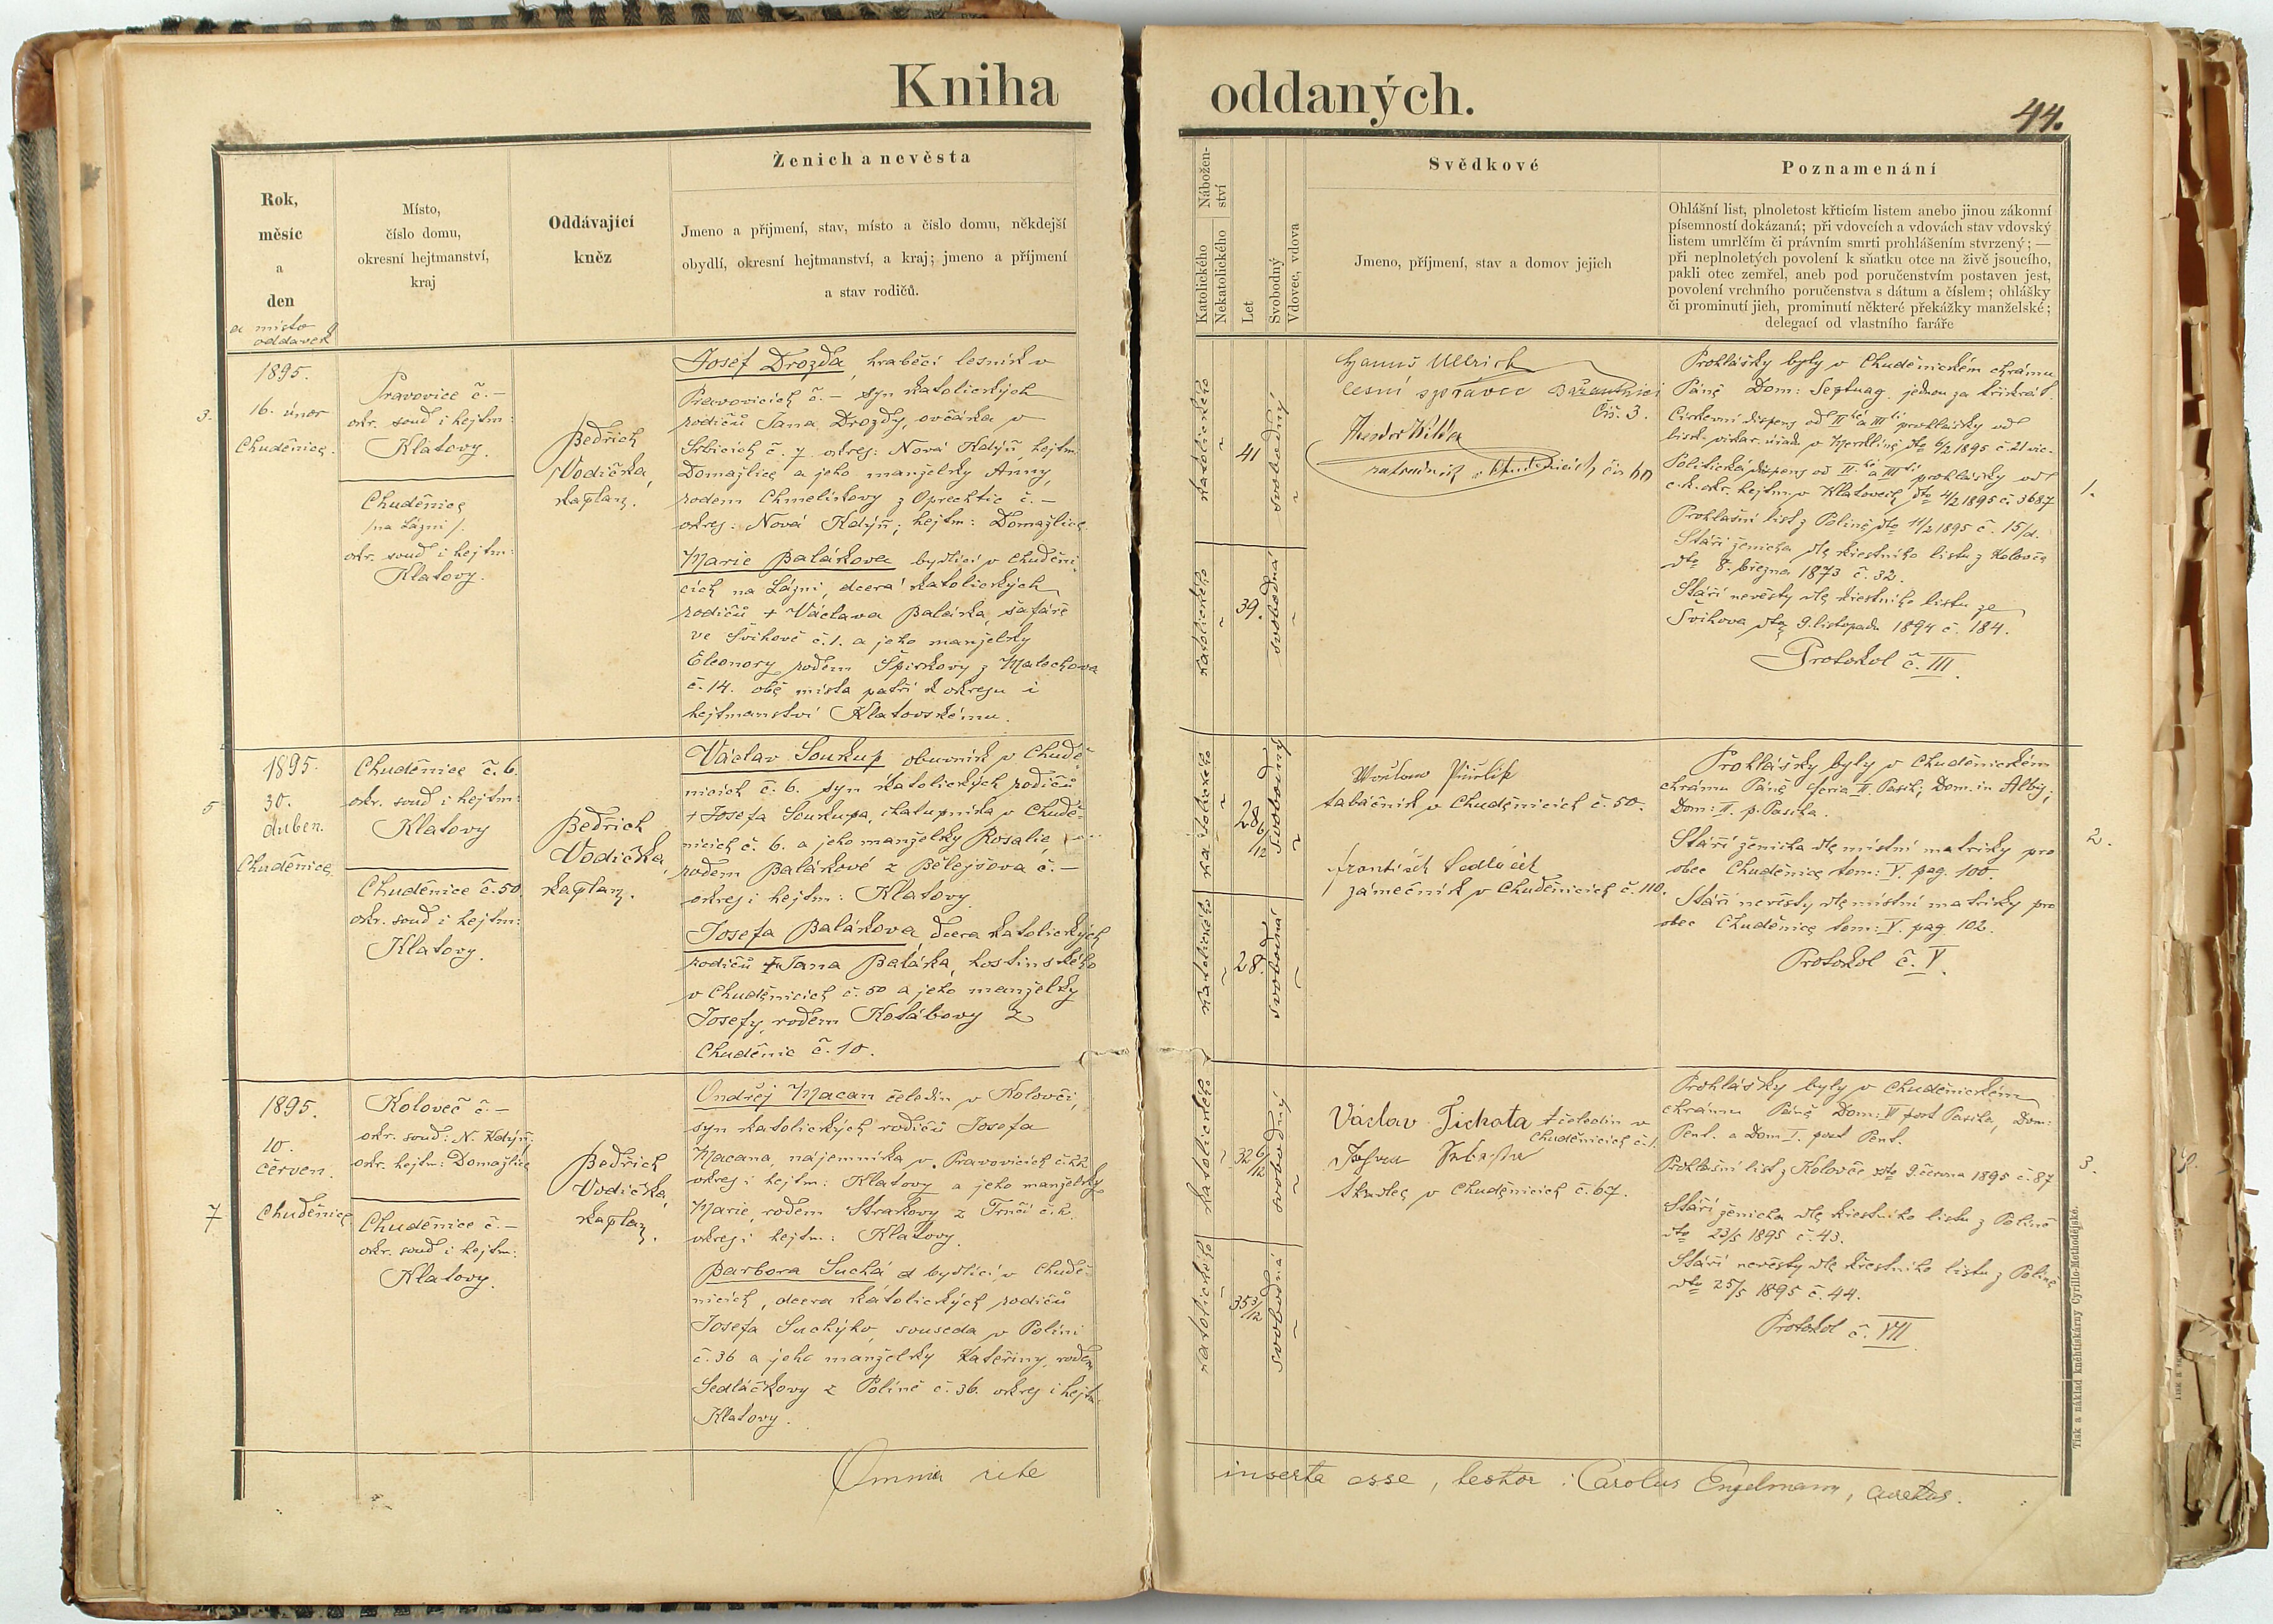 Kniha oddaných.
44.
Rok,
měsíc
a
den
a místo
oddavek
Místo,
číslo domu,
okresní hejtmanství,
kraj
Oddávající
kněz
Ženich a nevěsta
Jmeno a příjmení, stav, místo a číslo domu, někdejší
obydlí, okresní hejtmanství, a kraj; jmeno a příjmení
a stav rodičů.
Nábožen-
ství
Katolického
Nekatolického
Let
Svobodný
Vdovec, vdova
Svědkové
Jmeno, příjmení, stav a domov jejich
Poznamenání
Ohlášní list, plnoletost křticím listem anebo jinou zákonní
písemností dokázaná; při vdovcích a vdovách stav vdovský
listem umrlčím či právním smrti prohlášením stvrzený; —
při neplnoletých povolení k sňatku otce na živě jsoucího,
pakli otec zemřel, aneb pod poručenstvím postaven jest,
povolení vrchního poručenstva s dátum a číslem; ohlášky
či prominutí jich, prominutí některé překážky manželské;
delegací od vlastního faráře
3.
1895.
16. únor
Chuděnice.
Pravovice č. —
okr. soud i hejtm:
Klatovy.
Chuděnice
/na Lázni/.
okr. soud i hejtm:
Klatovy.
Bedřich
Vodička,
kaplan.
Josef Drozda, hraběcí lesník v
Pravovicích č. — syn katolických
rodičů Jana Drozdy, ovčáka v
Srbicích č. 7 okres: Nová Kdýň, hejtm.
Domažlice a jeho manželky Anny,
rodem Chmelíkovy z Oprechtic č. —
okres: Nová Kdýň; hejtm: Domažlice.
Marie Balákova bydlící v Chuděni-
cích na Lázni, dcera katolických
rodičů + Václava Baláka, šafáře
ve Švihově č. 1. a jeho manželky
Eleonory rodem Špirkovy z Malechova
č. 14. obě místa patří k okresu i
hejtmanství Klatovskému.
katolického
41
svobodný
katolického
39.
svobodná
Hanuš Ullrich
lesní správce Bažantnici
čís. 3.
Theodor
v Chudenicích, čís 60
Prohlášky byly v Chuděnickém chrámu
Páně Dom: Septuag. jednou za třikrát.
Církevní dispens od II hé a III tí prohlášky od
bisk. vikar. úřadu v Merklíně dto 6/2 1895 č. 21 vic.
Politická dispens od II. hé a III tí prohlášky od
c. k. okr. hejtm. v Klatovech dto 4/2 1895 č. 3687
Prohlašní list z Poleně dto 11/2 1895 č. 15/d.
Stáří ženicha dle křestního listu z Kolovče
dto 8. března 1873 č. 32.
Stáří nevěsty dle křestního listu ze
Švihova dto 9. listopadu 1894 č. 184.
Protokol č. III.
1.
5
1895.
30.
duben.
Chuděnice
Chuděnice č. 6.
okr. soud i hejtm:
Klatovy
Chuděnice č. 50
okr. soud i hejtm:
Klatovy.
Bedřich
Vodička,
kaplan.
Václav Soukup obuvník v Chudě-
nicích č. 6. syn katolických rodičů
+ Josefa Soukupa, chalupníka v Chudě-
nicích č. 6. a jeho manželky Rosalie,
rodem Balákové z Bělejšova č. —
okres i hejtm: Klatovy.
Josefa Balákova dcera katolických
rodičů + Jana Baláka, hostinského
v Chuděnicích č. 50 a jeho manželky
Josefy, rodem Kotábovy z
Chuděnic č. 10.
katolického
28 6/12
svobodný
katolického
28.
svobodná
tabáčník v Chuděnicích č. 50.
František Sedláček
zámečník v Chuděnicích č. 110.
Prohlášky byly v Chuděnickém
chrámu Páně feria II. Pasch; Dom. in Albis;
Dom: II. p. Pascha.
Stáří ženicha dle místní matriky pro
obec Chuděnice tom: V. pag. 100.
Stáří nevěsty dle místní matriky pro
obec Chuděnice tom: V. pag 102.
Protokol č. V.
2.
7
1895.
10.
červen.
Chuděnice
Koloveč č. —
okr. soud: N. Kdýň;
okr. hejtm: Domažlice
Chuděnice č. —
okr. soud i hejtm:
Klatovy.
Bedřich
Vodička,
kaplan.
Ondřej Macan čeledín v Kolovči,
syn katolických rodičů Josefa
Macana, nájemníka v Pravovicích č. 22
okres i hejtm: Klatovy a jeho manželky
Marie, rodem Strakovy z Trnčí č. 2.
okres i hejtm.: Klatovy.
Barbora Suchá bydlící v Chudě-
nicích, dcera katolických rodičů
Josefa Suchýho, souseda v Polini
č. 36 a jeho manželky Kateřiny, rodem
Sedláčkovy z Polině č. 36. okres i hejtm.
Klatovy.
katolického
32 6/12
svobodný
katolického
35 3/12
svobodná
Václav Tichota čeledín v
Chuděnicích č. 1.
v Chuděnicích č. 67.
Prohlášky byly v Chuděnickém
chrámu Páně Dom: VI post Pascha, Dom:
Pent. a Dom I. post Pent.
Prohlašní list z Kolovče dto 9. června 1895 č. 87
Stáří ženicha dle křestního listu z Poleně
dto 23/5 1895 č. 43.
Stáří nevěsty dle křestního listu z Poleně
dto 25/5 1895 č. 44.
Protokol č. VII.
3.
Omnia rite inserta esse, testor: Carolus Engelmann,
Tisk a náklad knihtiskárny Cyrillo-Methodějské.